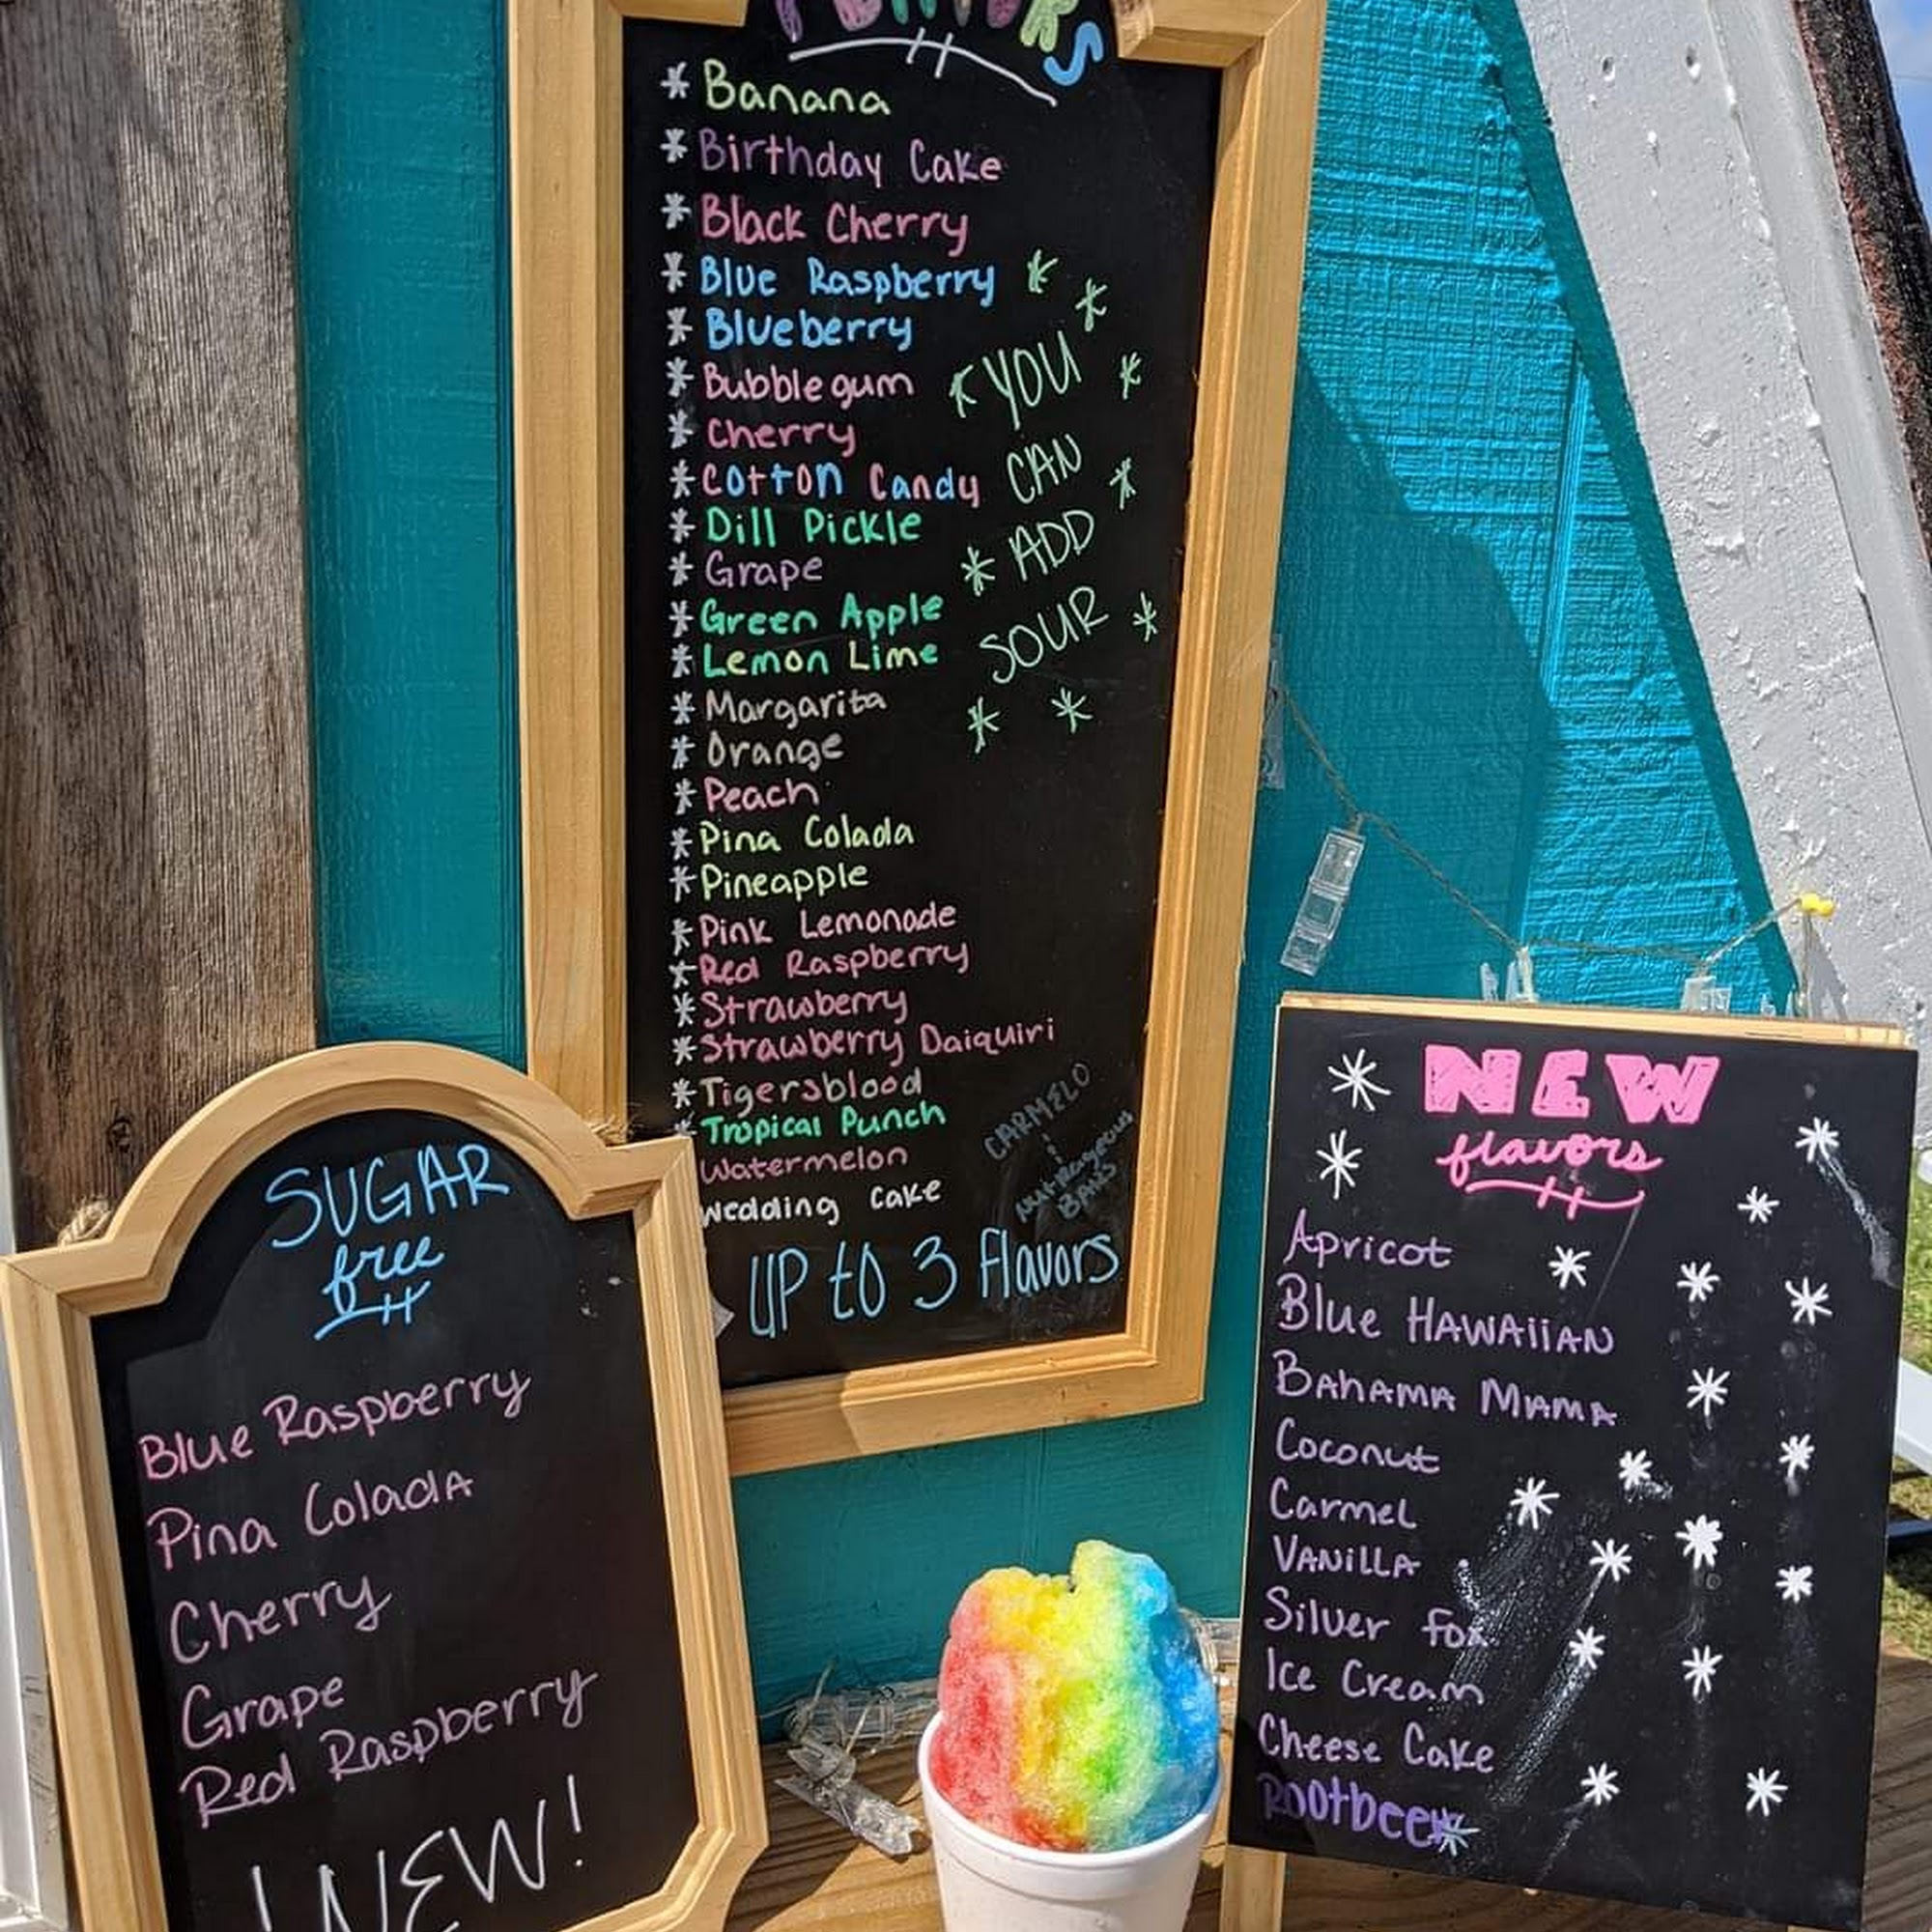 FLAVORS
* Banana
* Birthday Cake
* Black Cherry
* Blue Raspberry
* Blueberry
* Bubblegum
* Cherry
* Cotton Candy
* Dill Pickle
* Grape
* Green Apple
* Lemon Lime
* Margarita
* Orange
* Peach
* Pina Colada
* Pineapple
* Pink Lemonade
* Red Raspberry
* Strawberry
* Strawberry Daiquiri
* Tigersblood
* Tropical Punch
Watermelon
Wedding Cake
YOU
CAN
ADD
SOUR
CARMELO
Nutrageous
BARS
UP to 3 Flavors
SUGAR
free
Blue Raspberry
Pina Colada
Cherry
Grape
Red Raspberry
NEW!
NEW
flavors
Apricot
Blue HAWAiiAN
BAHAMA MAMA
Coconut
Carmel
VANiLLA
Silver Fox
Ice Cream
Cheese Cake
Rootbeer